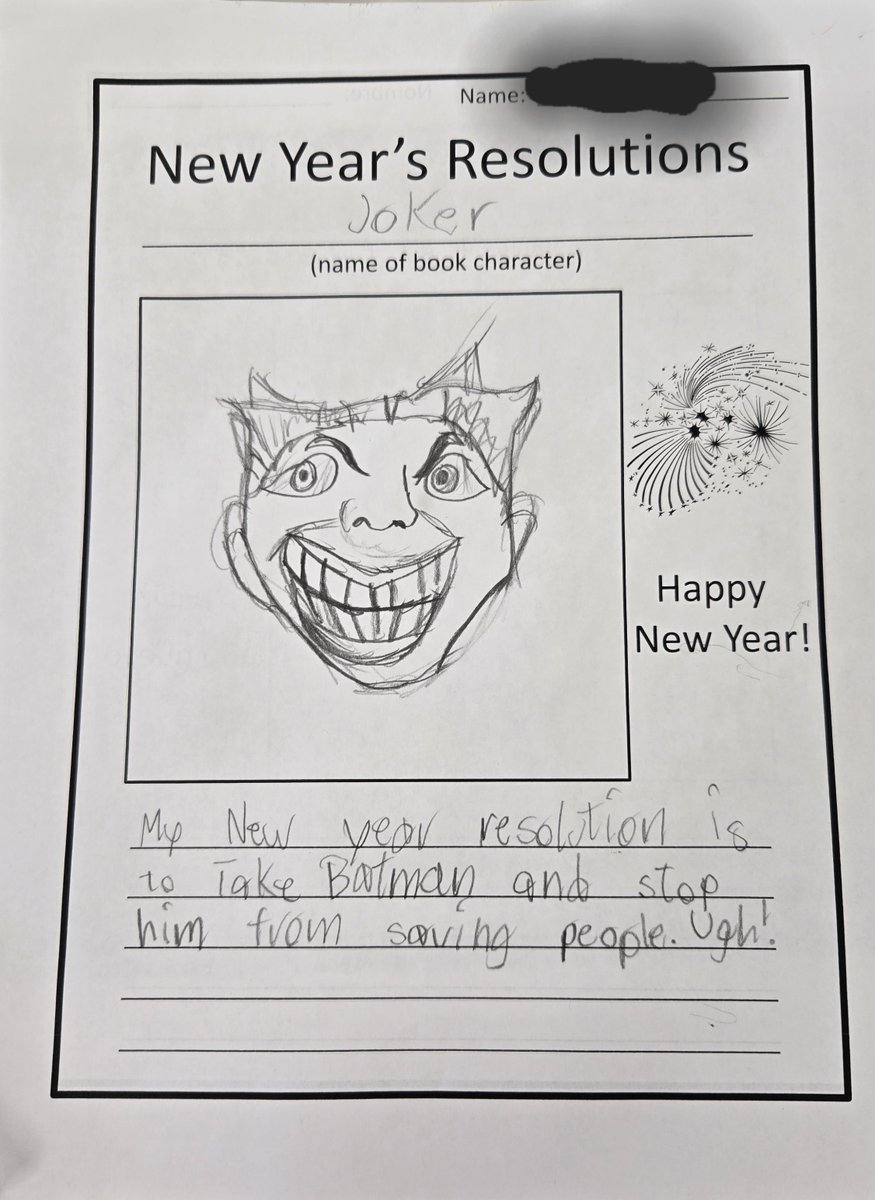 Name:
New Year's Resolutions
Joker
(name of book character)
Happy
New Year!
My New year resolution is
to Take Batman and stop
him from saving people. Ugh!